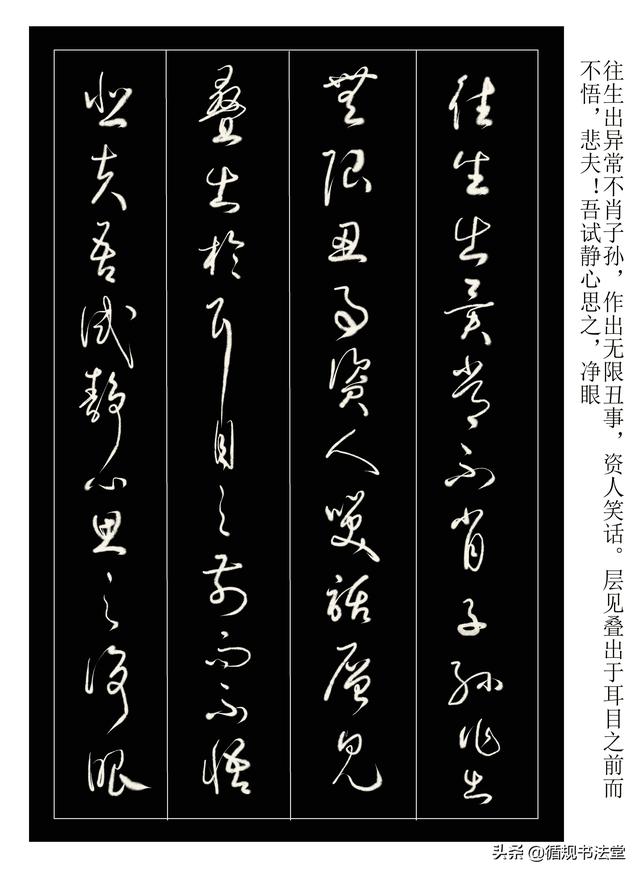 往生出异常不肖子孙，作出无限丑事，资人笑话。层见叠出于耳目之前而
不悟，悲夫！吾试静心思之，净眼
往生出異常不肖子孫作出
無限丑事資人笑話層見
疊出於耳目之前而不悟
悲夫吾試靜心思之淨眼
头条 @循规书法堂